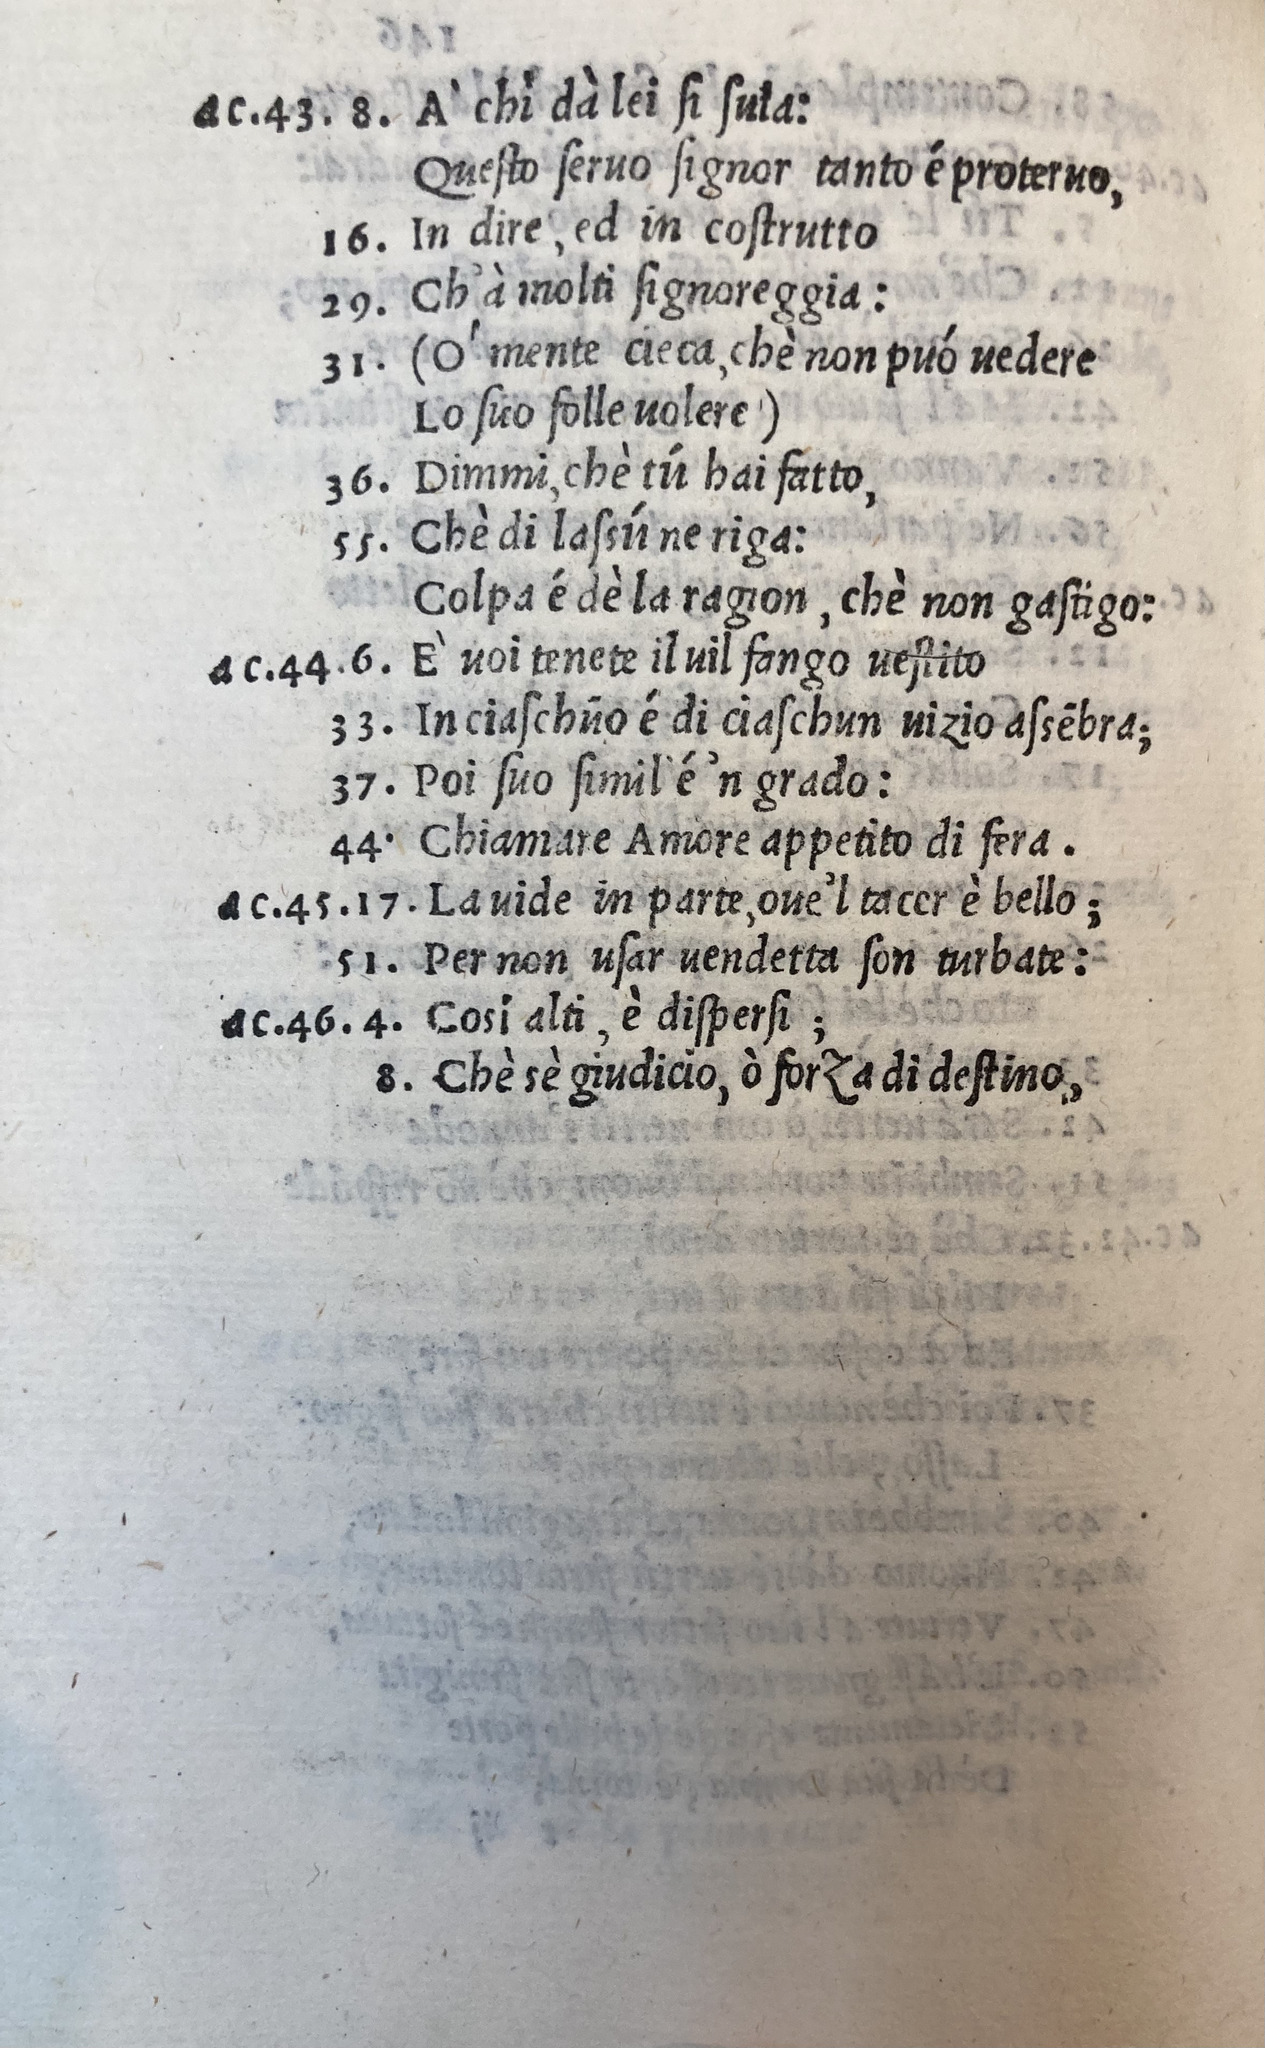 ac.43. 8. A` chi dà lei ſi ſuia:
Queſto ſeruo ſignor tanto é proteruo,
16. In dire, ed in coſtrutto
29. Ch'à molti ſignoreggia:
31. (O' mente cieca, chè non puó uedere
Lo ſuo folle uolere)
36. Dimmi, chè tú hai fatto,
55. Chè di laſsú ne riga:
Colpa é dè la ragion, chè non gaſtigo:
ac.44.6. E` uoi tenete il uil fango ueſtito
33. In ciaſchūo é di ciaſchun uizio aſsēbra;
37. Poi ſuo ſimil' é 'n grado:
44. Chiamare Amore appetito di fera.
ac.45.17. La uide in parte, oue'l tacer è bello;
51. Per non uſar uendetta ſon turbate:
ac.46.4. Cosí alti, è diſperſi;
8. Chè sè giudicio, ò forza di deſtino,